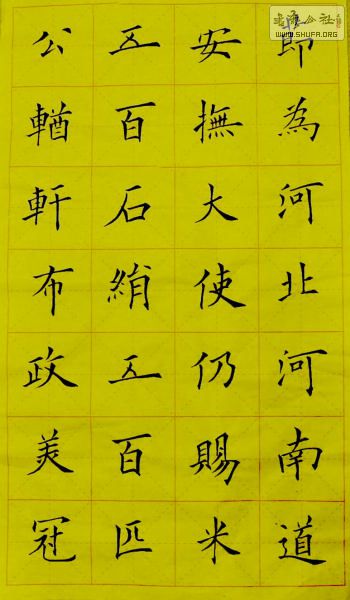 即為河北河南道
安撫大使仍賜米
五百石絹五百匹
公輶軒布政美冠
WWW.SHUFA.ORG